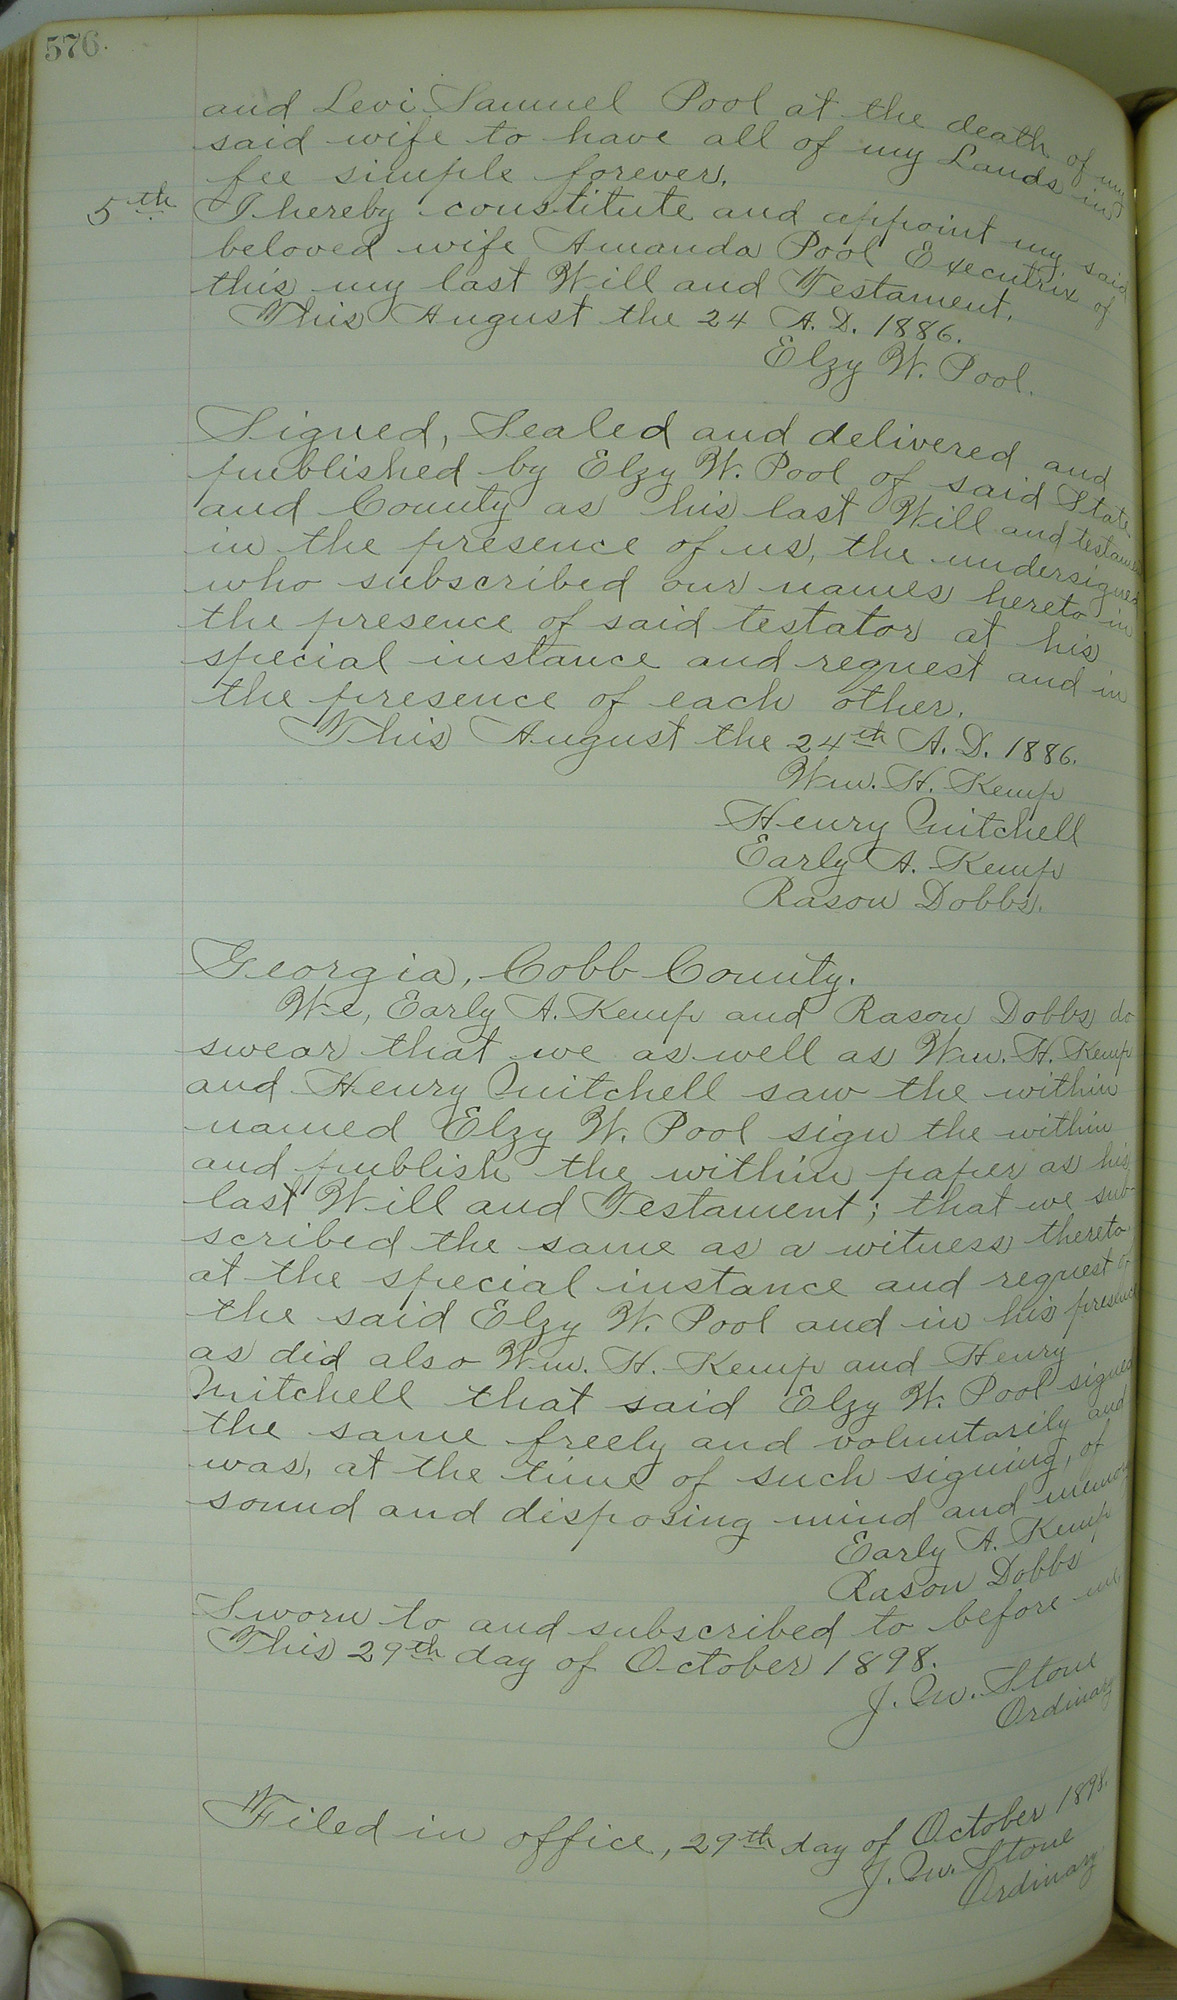 576.
and Levi Samuel Pool at the death of my
said wife to have all of my Lands in
fee simple forever.
5th I hereby constitute and appoint my said
beloved wife Amanda Pool Executrix of
this my last Will and Testament.
This August the 24 A.D. 1886.
Elzy W. Pool.
Signed, Sealed and delivered and
published by Elzy W. Pool of said State
and County as his last Will and testament
in the presence of us, the undersigned
who subscribed our names hereto in
the presence of said testator at his
special instance and request and in
the presence of each other.
This August the 24th A.D. 1886.
Wm. H. Kemp
Henry Mitchell
Early A. Kemp
Rason Dobbs.
Georgia, Cobb County.
We, Early A. Kemp and Rason Dobbs do
swear that we as well as Wm. H. Kemp
and Henry Mitchell saw the within
named Elzy W. Pool sign the within
and publish the within paper as his
last Will and Testament; that we sub-
scribed the same as a witness thereto
at the special instance and request of
the said Elzy W. Pool and in his presence
as did also Wm. H. Kemp and Henry
Mitchell that said Elzy W. Pool signed
the same freely and voluntarily and
was, at the time of such signing, of
sound and disposing mind and memory
Early A. Kemp
Rason Dobbs
Sworn to and subscribed to before me
This 29th day of October 1898.
J. M. Stone
Ordinary
Filed in office, 29th day of October 1898.
J. M. Stone
Ordinary